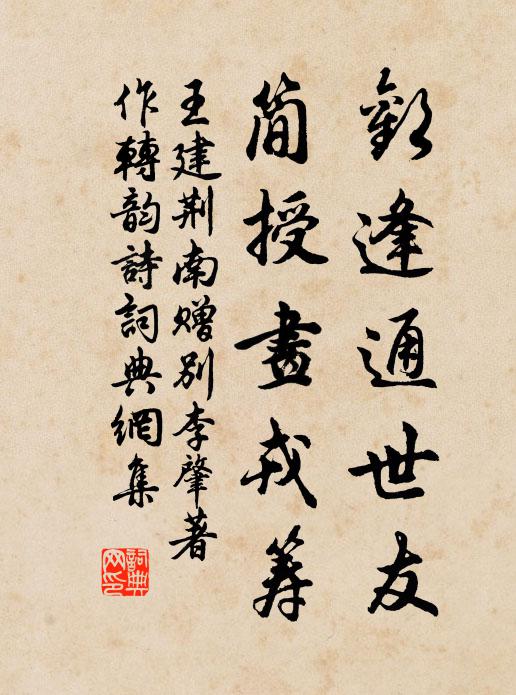 歡逢通世友
簡授畫戎籌
王建荆南赠别李肇著
作轉韵詩詞典網集
詞典網印